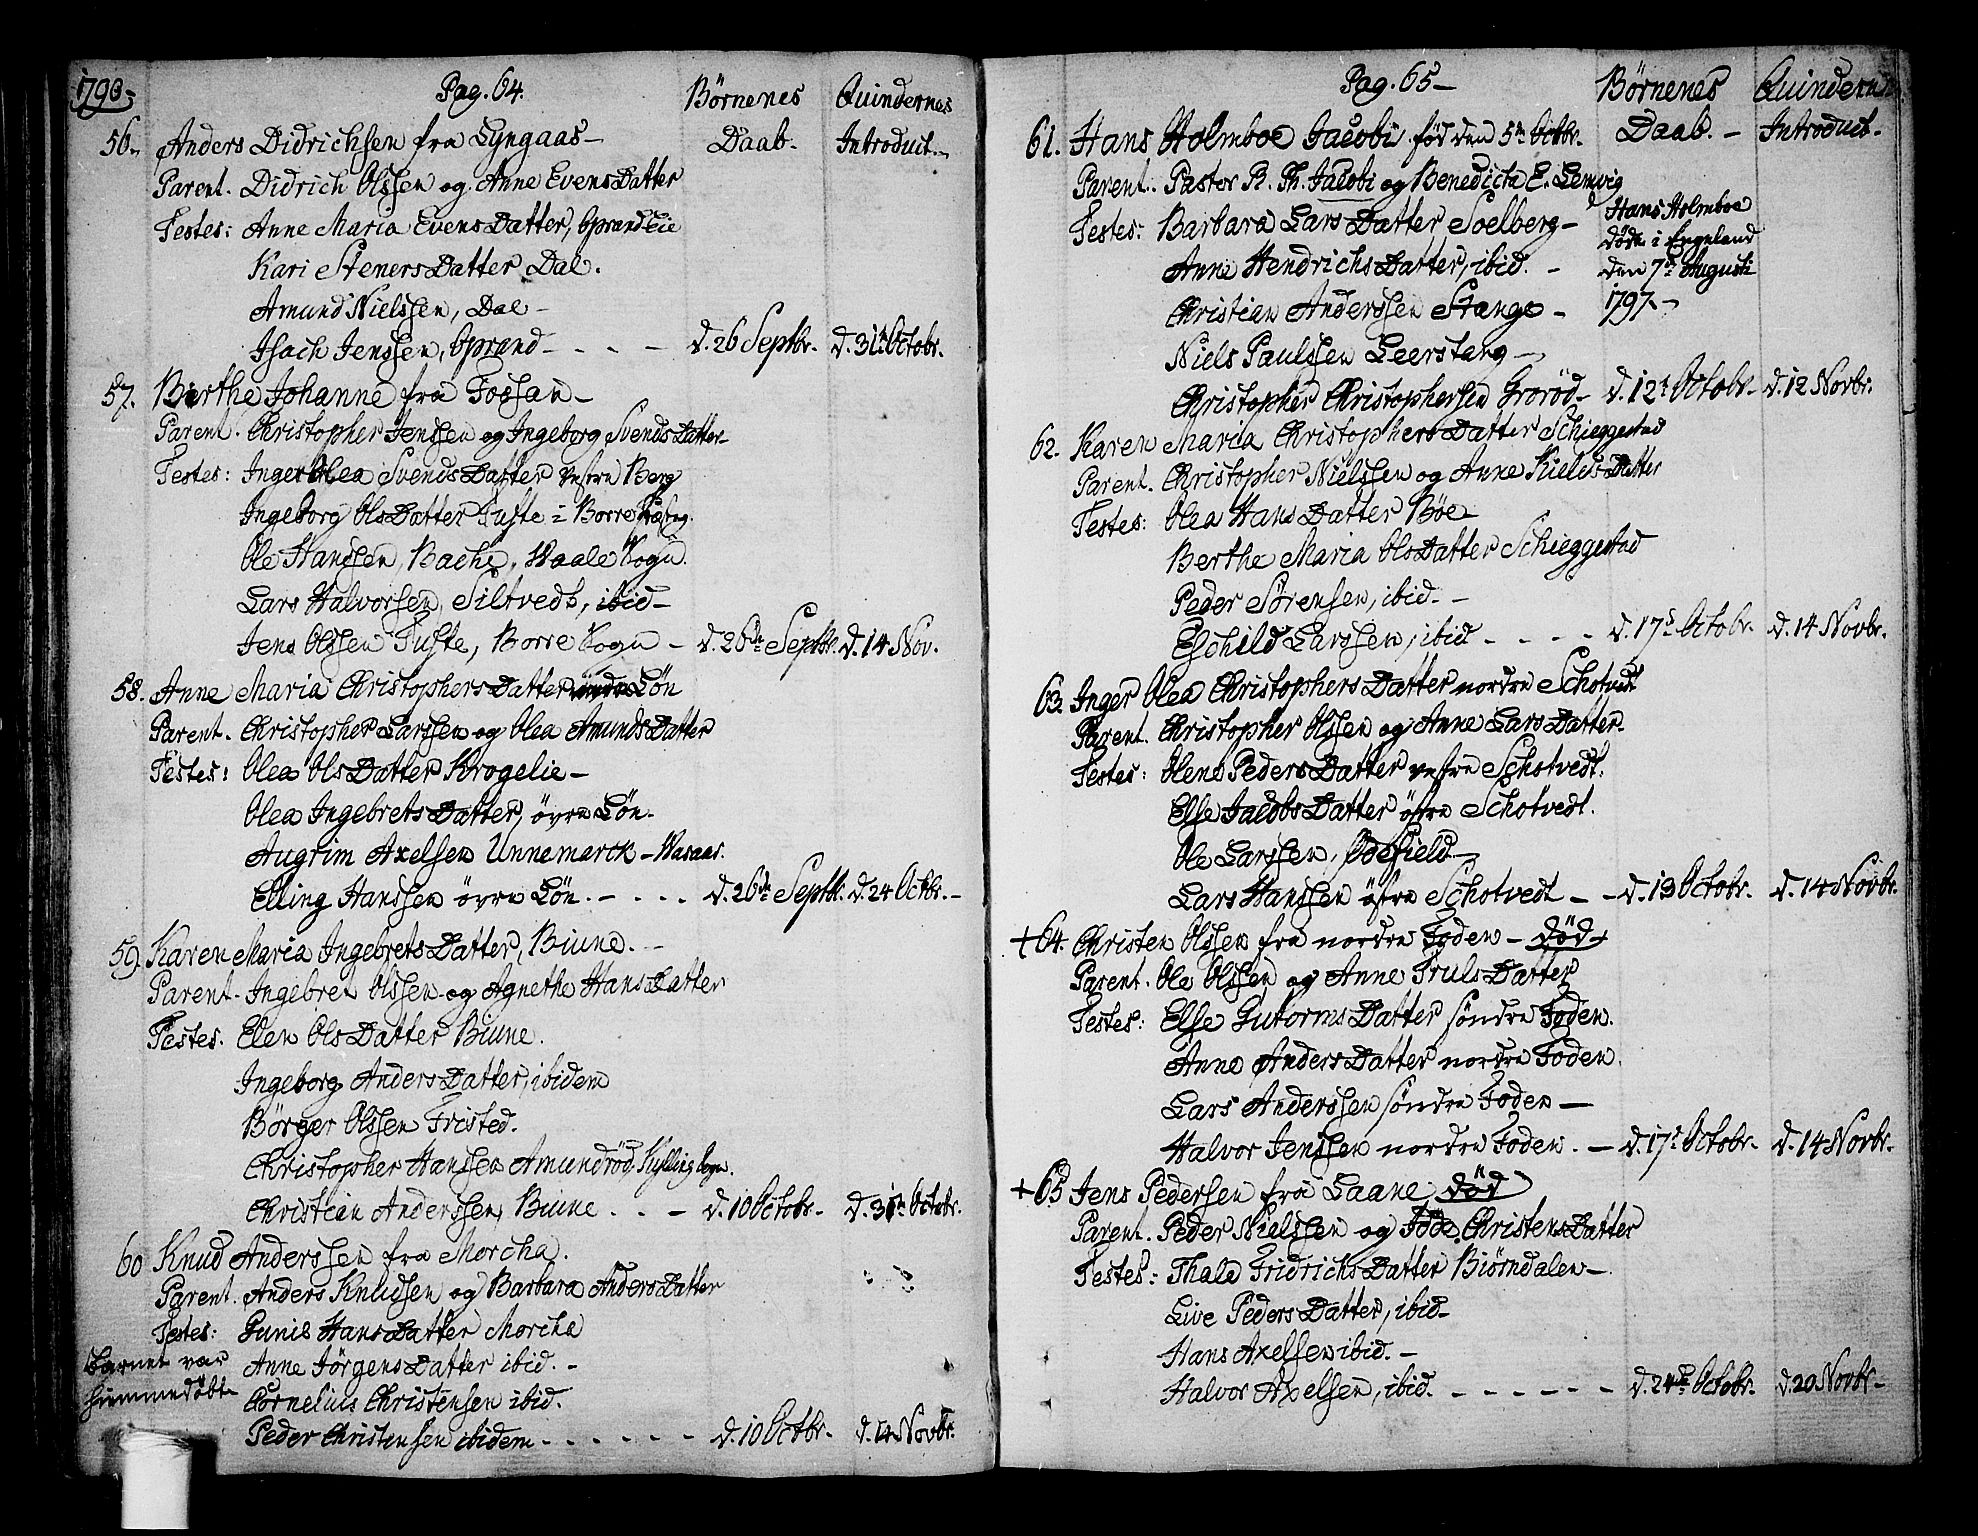 Pag. 64.
Børnenes Quindernes
56. Anders Didrichsen fra Lyngaas - Daab. Introduct.
Parent. Didrich Olssen og Anne Evens Datter
Testes: Anne Maria Evens Datter, Oprand Eie
Kari Steners Datter Dal.
Amund Nielssen, Dal -
Isach Jenssen, Oprand - - - - d. 26 Septbr. d. 31t Octobr.
57. Birthe Johanne fra Fossan -
Parent. Christopher Jenssen og Ingeborg Svends Datter -
Testes: Inger Olea Svends Datter vestre Berg
Ingeborg Ols Datter Tufte i Borre
Ole Hanssen, Bache, Waale Sogn.
Lars Halvorsen, Siltvedt, ibid -
Jens Olssen Tufte, Borre Sogn - d. 26de Septbr. d. 14 Nov.
58. Anne Maria Christophers Datter Løn
Parent. Christopher Larssen og Olea Amunds Datter
Testes: Olea Ols Datter Krogelie -
Olea Ingebrets Datter, øvre Løn.
Augrim Axelsen Unnemarck - Waaas.
Elling Hanssen øvre Løn. - . . . d. 26de Septbr. d. 24 Octbr. -
59. Karen Maria Ingebrets Datter, Biune. -
Parent - Ingebret Olssen og Agnethe Hans Datter
Testes. Elen Ols Datter Biune.
Ingeborg Anders Datter, ibidem
Børger Olssen Fristed.
Christopher Hanssen Amundrød,
Christian Anderssen, Biune . . . - d. 10 Octobr. - d. 31te Octobr.
60 Knud Anderssen fra Morcha.
Parent. Anders Knudsen og Barbara Anders Datter
Testes: Gunil Hans Datter Morcha
Barnet var Anne Jørgens Datter ibid. -
hiemmedøbt Cornelius Christensen ibid.
Peder Christensen ibidem - . . . . . - d. 10 Octbr. - d. 14 Novbr.
Pag. 65 -
Børnenes
61. Hans Holmboe Jacobi, fød den 5te Octbr. Daab. - Introduct. -
Parent. Pastor R. Th. Jacobi og Benedicta E. Lemvig
Testes: Barbara Lars Datter Soelberg -
Anne Hendrichs Datter, ibid. -
Christian Anderssen Stange -
Niels Paulssen Leerstang -
Christopher Christophersen Grorød - d. 12t Octobr. - d. 12 Novbr.
Hans Holmboe
døde i Engeland
den 7de Augusti
1797. -
62. Karen Maria Christophers Datter Schieggestad
Parent. Christopher Nielssen og Anne Kields Datter
Testes: Olea Hans Datter Bøe
Berthe Maria Ols Datter Schieggestad
Peder Sørensen, ibid. -
Eschild Larssen, ibid - - - - d. 17de Octobr. d. 14 Novbr.
63. Inger Olea Christophers Datter nordre Schotvedt
Parent. Christopher Olssen og Anne Lars Datter -
Testes: Olene Peders Datter vestre Schotvedt.
Else Jacobs Datter østre Schotvedt.
Ole Larssen, Ødefield -
Lars Hanssen østre Schotvedt - - d. 13 Octobr. d. 14 Novbr.
+ 64. Christen Olssen fra nordre Foden - død -
Parent. Ole Olssen og Anne Truls Datter
Testes: Else Gutorms Datter søndre Foden.
Anne Anders Datter nordre Foden.
Lars Anderssen søndre Foden -
Halvor Jenssen nordre Foden. - d. 17de Octobr. d. 14 Novbr.
+ 65 Jens Pedersen fra Laane, død
Parent. Peder Nielssen og Christens Datter
Testes: Thale Fridrichs Datter Biørndalen -
Live Peders Datter, ibid -
Hans Axelsen ibid. -
Halvor Axelsen, ibid. - - - - - - d. 24de Octobr. d. 20 Novbr -